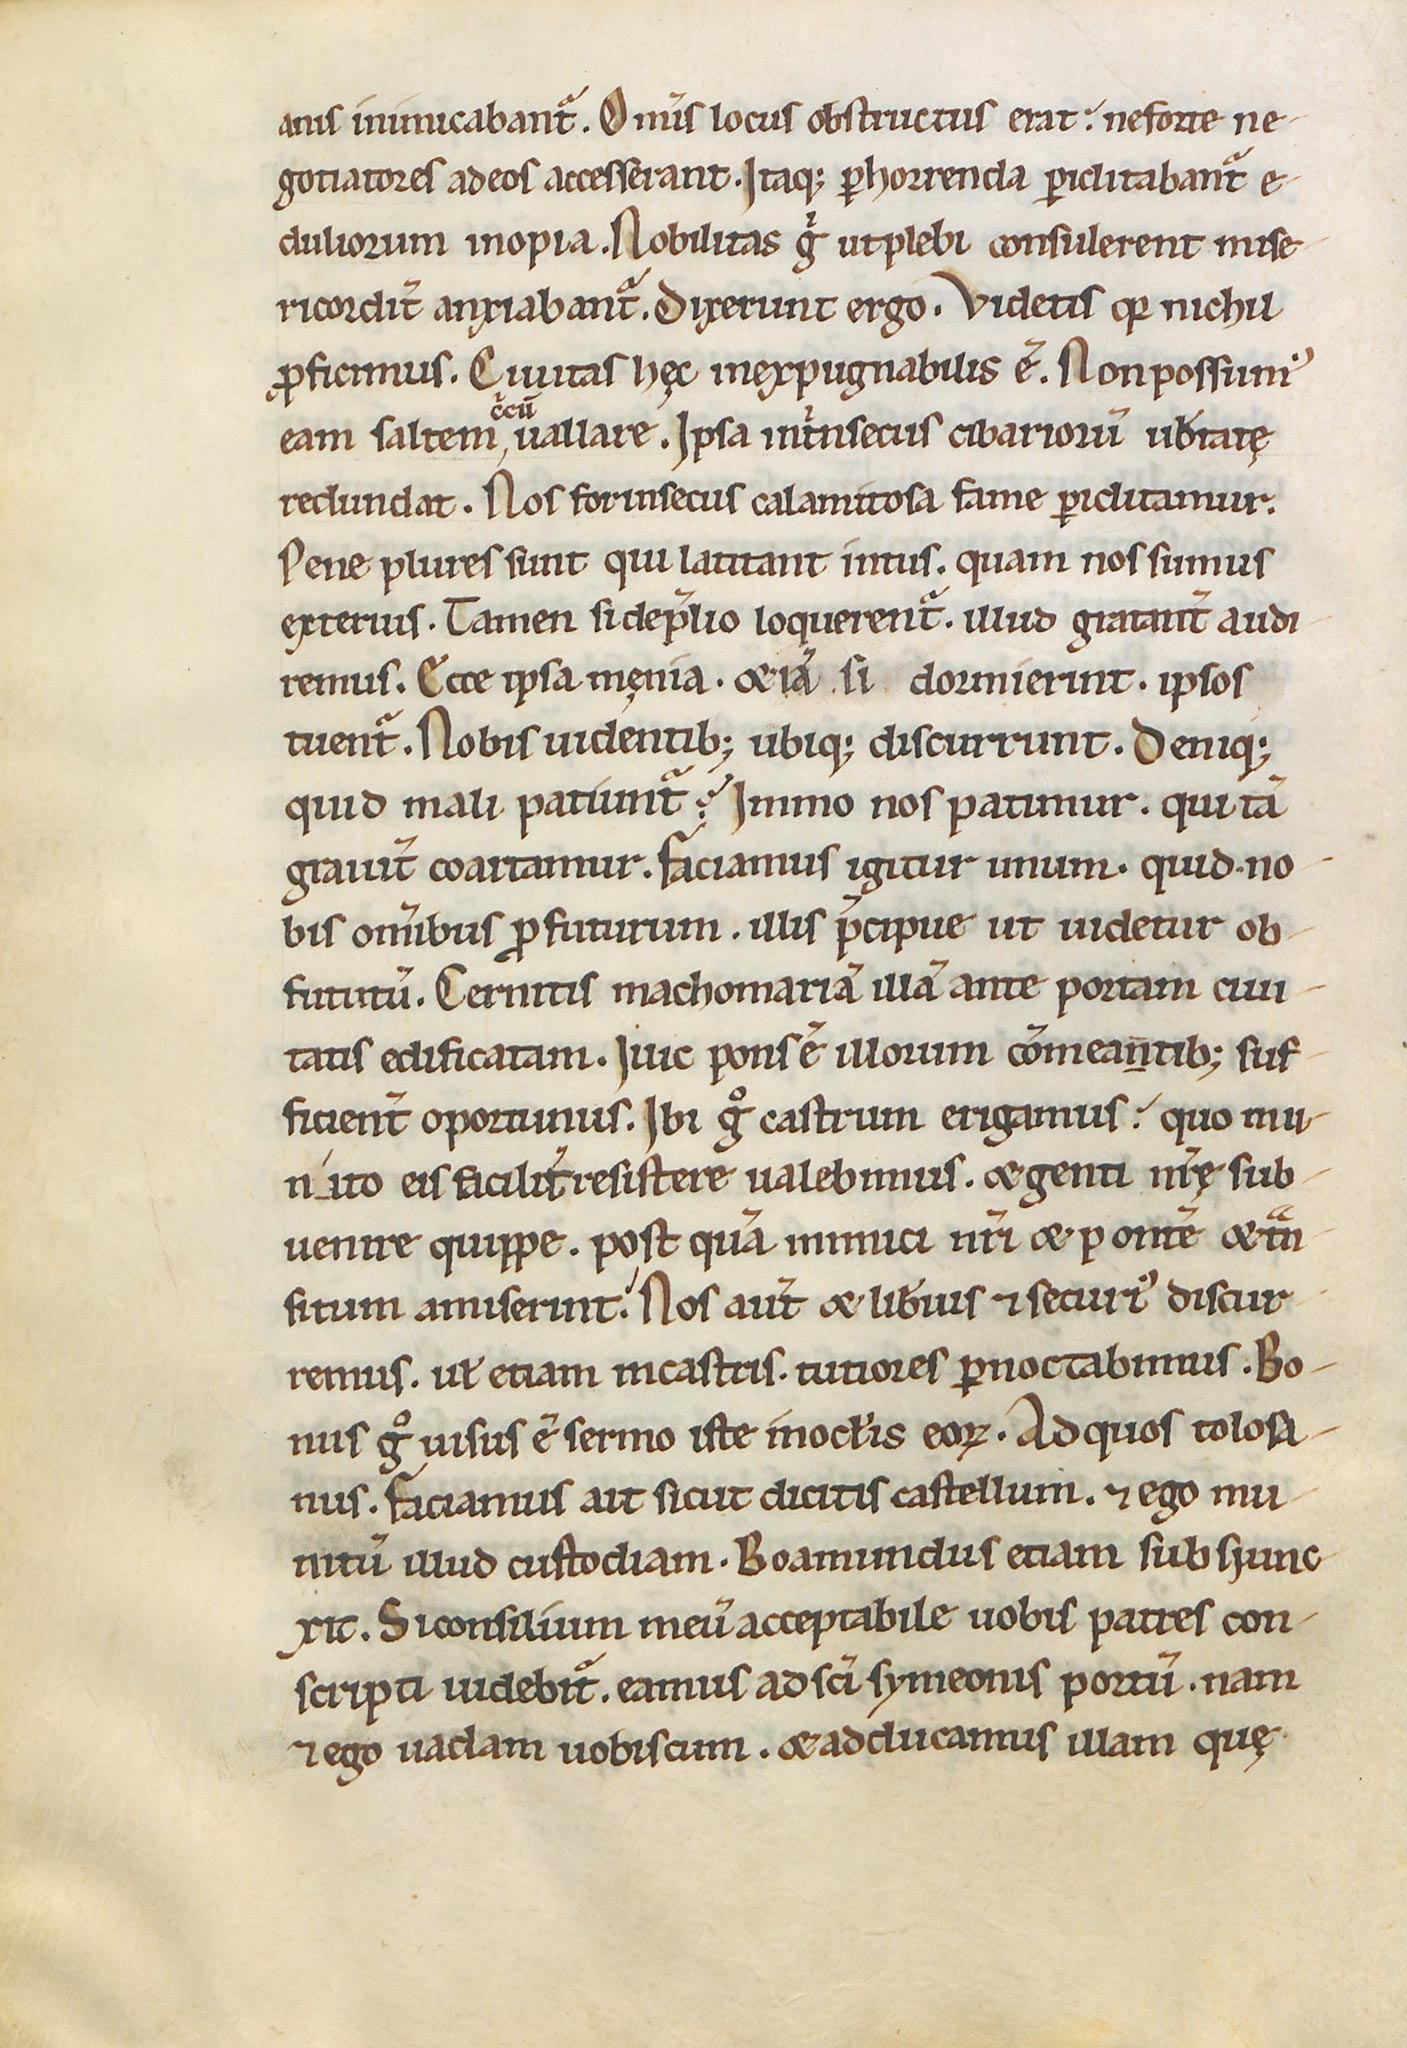 anis inimicabant᷑. Om̅is locus obstructus erat. neforte ne-
gotiatores adeos accesserant. Itaq; ꝑhorrenda ꝑiclitabant᷑ e-
duliorum inopia. Nobilitas gͥ utplebi consulerent mise-
ricordit̅ anxiabant᷑. Dixerunt ergo. Videtis qꝫ nichil
ꝓficimus. Ciuitas hęc inexpugnabilis ē. Nonpossumꝰ
eam saltem, c̅cū uallare. Ipsa int̅nsecus cibariorū ub̅tatę
redundat. Nos forinsecus calamitosa fame ꝑiclitamur.
Pene plures sunt qui latitant intus. quam nos sumus
exterius. Tamen si dep̅lio loquerent᷑. illud gratant̅ audi-
remus. Ecce ipsa męnia. &iā si dormierint. ipsos
tuent᷑. Nobis uidentib; ubiq; discurrunt. Deniq;
quid mali patiunt᷑? Immo nos patimur. qui tā
grauit̅ coartamur. Faciamus igitur unum. quid no-
bis om̅ibus ꝓfuturum. illis p̅cipue ut uidetur ob-
fuitutū. Cernitis machomariā illā ante portam ciui-
tatis edificatam. Iuic pons ē illorum cōmeantib; suf-
ficient̅ oportunus. Ibi gͦ castrum erigamus. quo mu-
nito eis facilit̅ resistere ualebimus. & genti nr̅ę sub-
uenire quippe. post quā inimici nr̅i & pontē & t᷑n-
situm amiserint. Nos aut̅ & lib̅ius ⁊ securiꝰ discur-
remus. ul̅ etiam incastris. tutiores ꝑnoctabimus. Bo-
nus gͦ uisus ē sermo iste inocl̅is eoꝝ. Ad quos tolosa-
nus. Faciamus ait sicut dicitis castellum. ⁊ ego mu-
nitū illud custodiam. Boamundus etiam subiunc-
xit. Si consilium meū acceptabile uobis patres con-
scripti uidebit᷑. eamus ad sc̅i symeonis portū. nam
⁊ ego uadam uobiscum. & adducamus illam quę